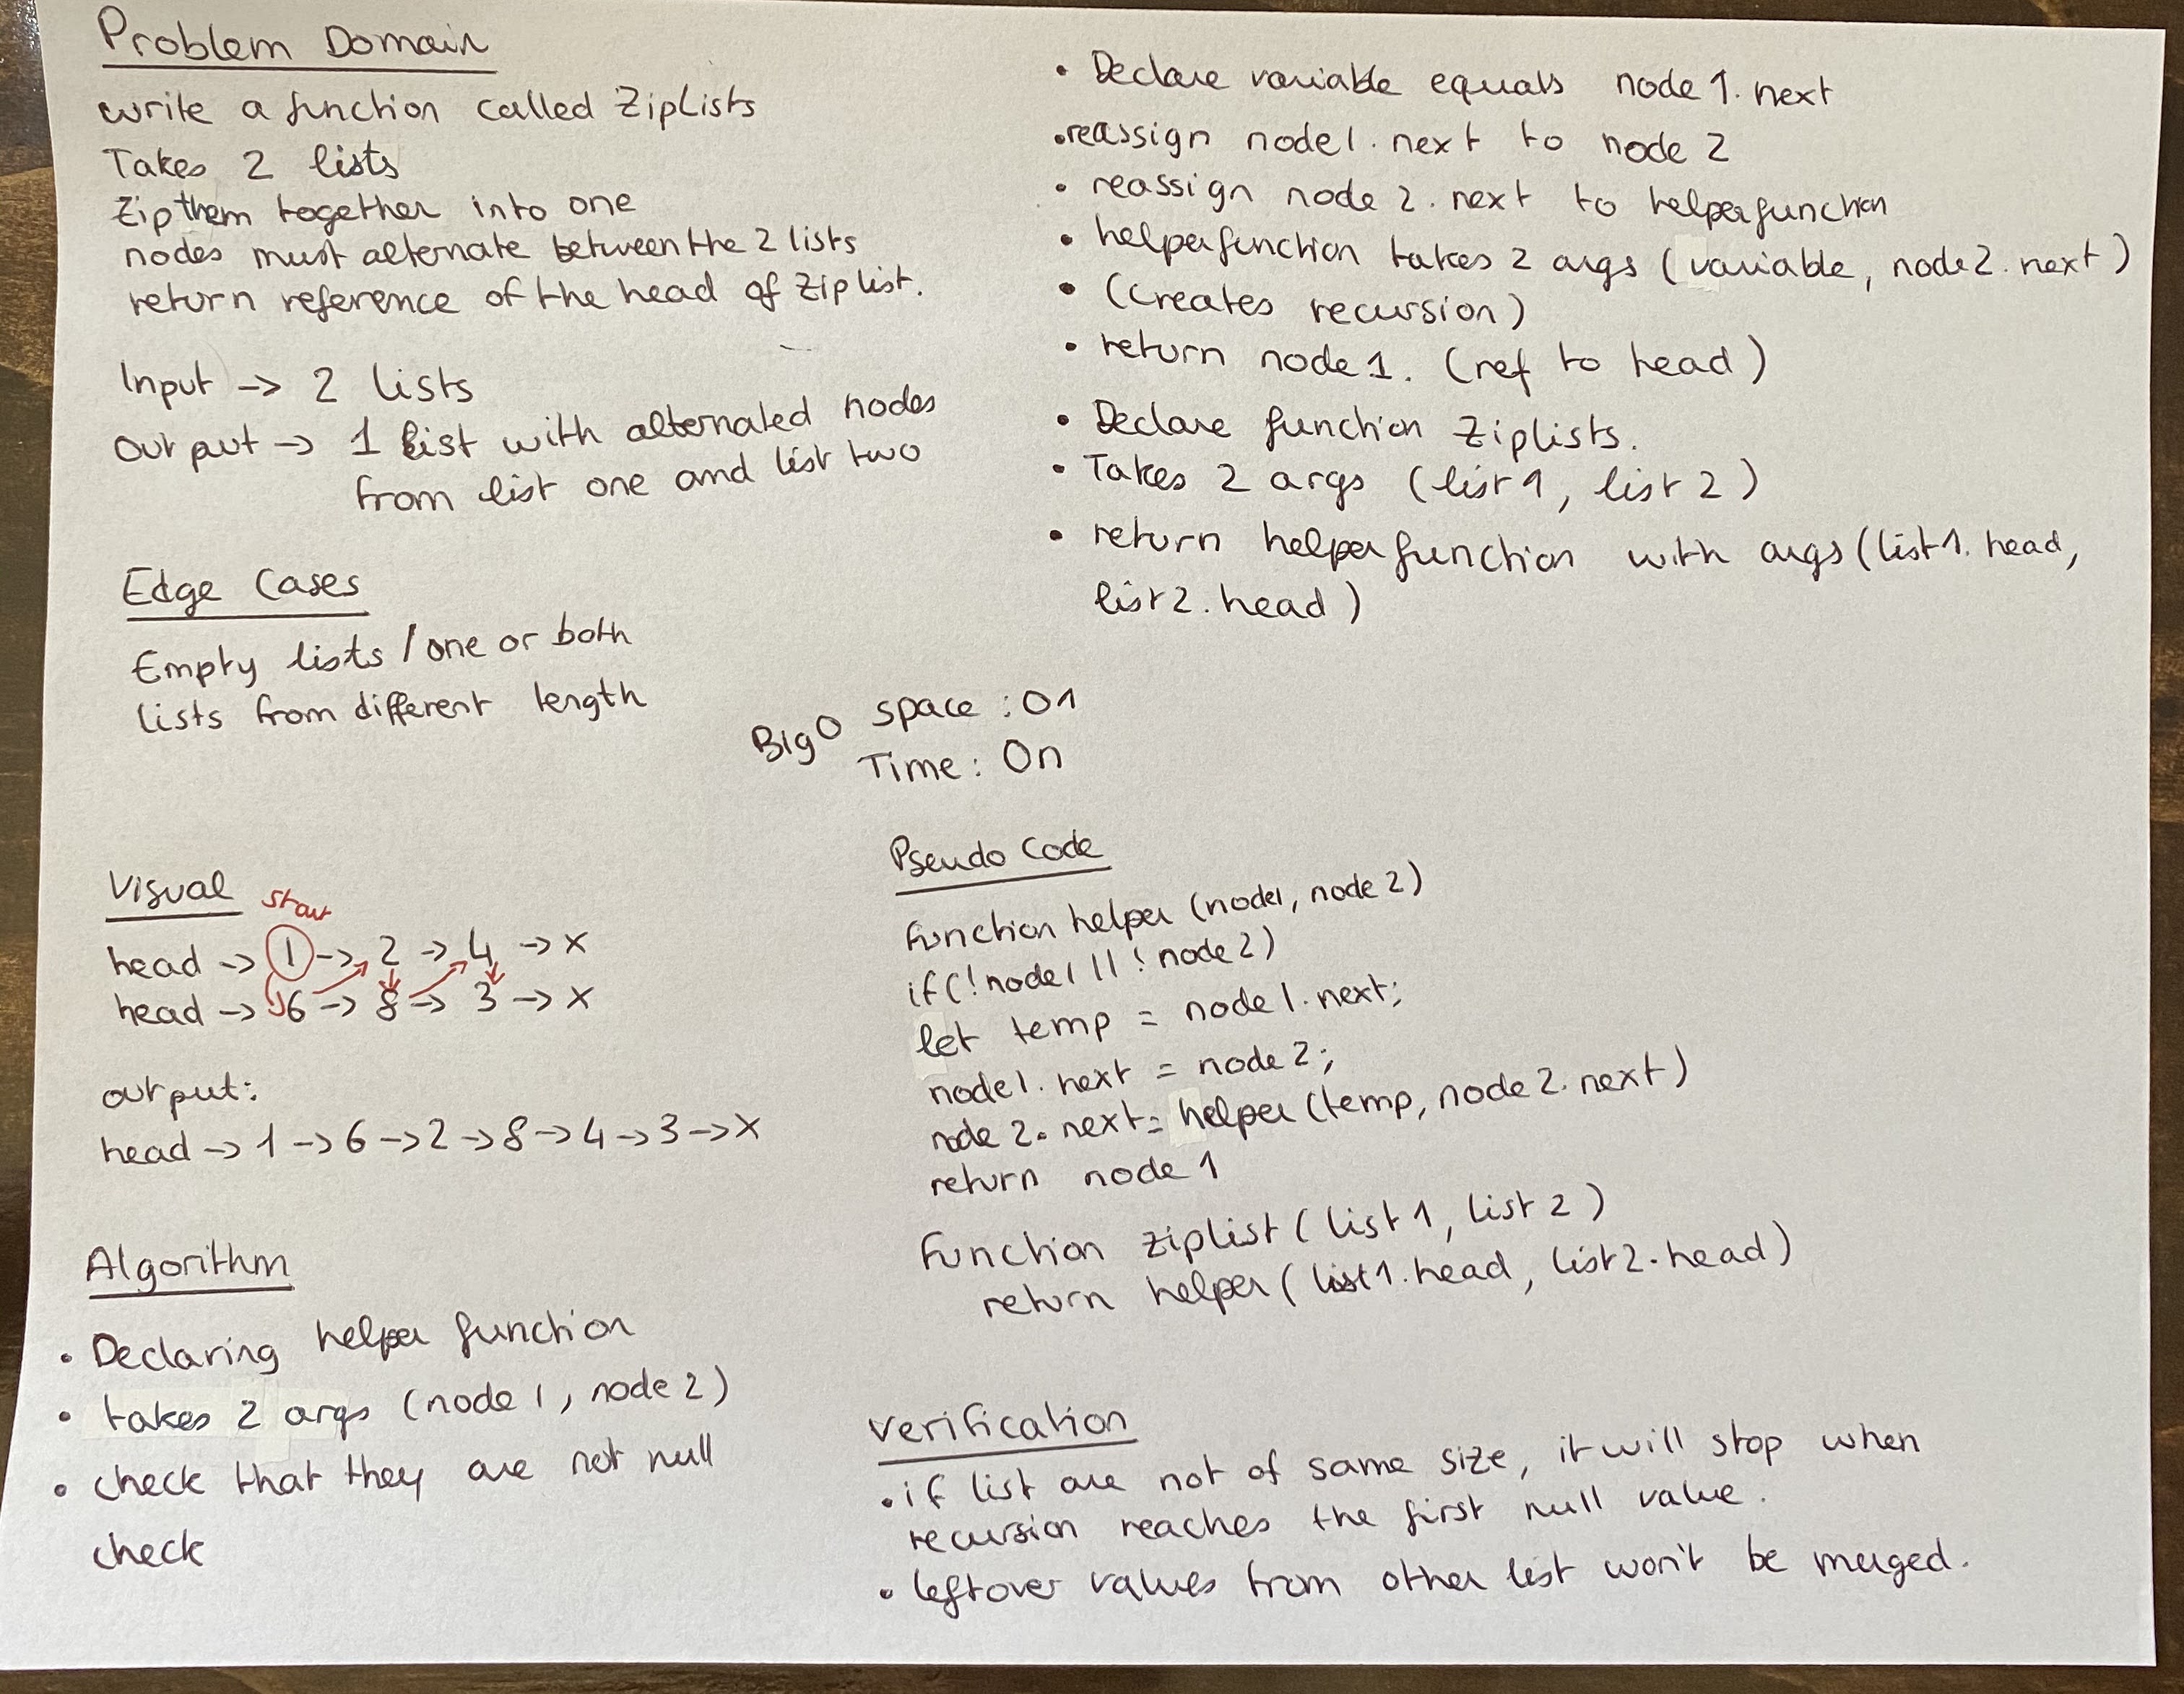 Problem Domain
write a function called ZipLists
Takes 2 lists
Zip them together into one
nodes must alternate between the 2 lists
return reference of the head of Ziplist.
Input -> 2 lists
Output -> 1 list with alternated nodes
from list one and list two
Edge Cases
Empty lists / one or both
lists from different length
Big O space : O1
Time : On
Visual
start
head -> 1 -> 2 -> 4 -> X
head -> 6 -> 8 -> 3 -> X
output:
head -> 1 -> 6 -> 2 -> 8 -> 4 -> 3 -> X
Algorithm
• Declaring helper function
• takes 2 args (node 1, node 2)
• check that they are not null
check
• Declare variable equals node 1. next
• reassign node1. next to node 2
• reassign node 2. next to helperfunction
• helperfunction takes 2 args (variable, node2. next)
• (creates recursion)
• return node 1. (ref to head)
• Declare function Ziplists.
• Takes 2 args (list 1, list 2)
• return helperfunction with args (list1. head,
list2. head)
Pseudo Code
Function helper (node1, node 2)
if (!node1 || !node 2)
let temp = node1.next;
node1. next = node 2;
node 2. next= helper (temp, node 2. next)
return node 1
Function ziplist (list 1, list 2)
return helper (list 1. head, list2. head)
verification
• if list are not of same size, it will stop when
recursion reaches the first null value.
• leftover values from other list won't be merged.